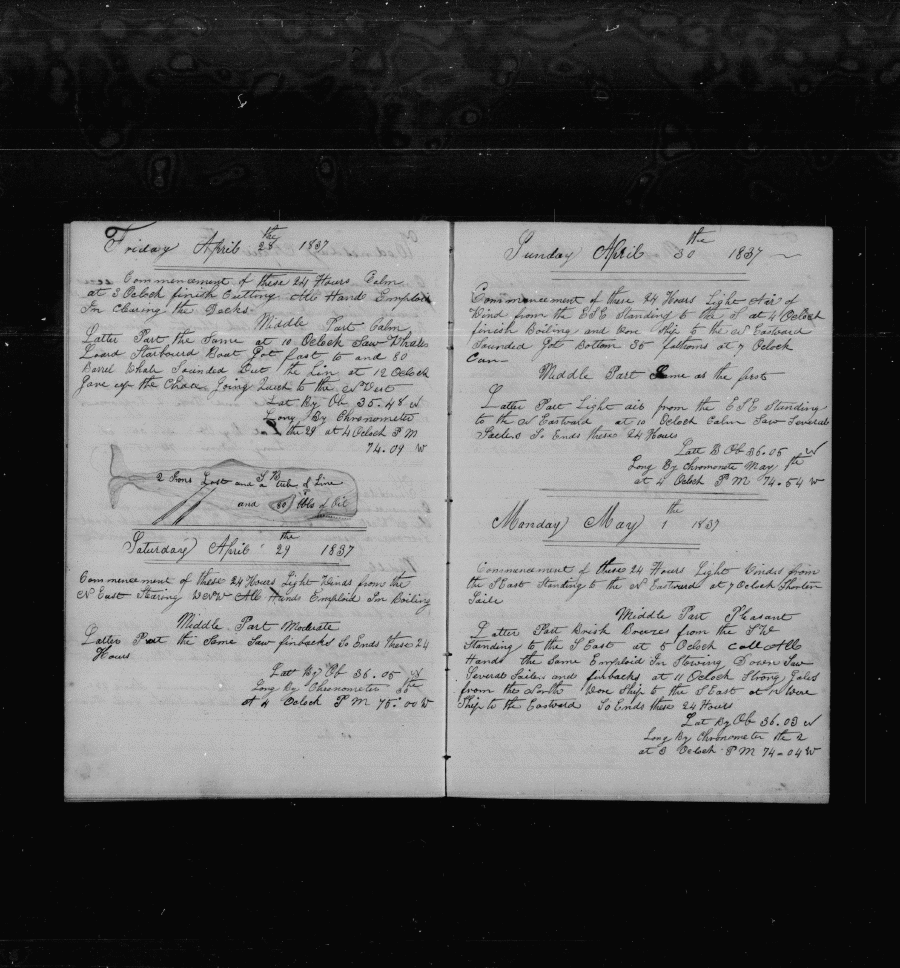 Friday April 28 the 1837
Commencement of these 24 Hours Calm
at 3 Oclock finish Cutting All Hand Emploid
In Clearing the Decks
Middle Part Calm
Latter Part the Same at 10 Oclock Saw Whales
Loard Starbourd Boat Got fast to and 80
Barrel Whale Sounded Out the Line at 12 Oclock
Gave up the Chace Going Quick to the N West
Lat By Ob 35.48 N
Long By Chronometer
the 29 at 4 Oclock P M
74.09 W
2 Irons Lost and a Tub of Line
and 80 bbls of Oil
Saturday April 29 the 1837
Commencement of these 24 Hours Light Winds from the
N East Stearing WNW All Hands Emploid In Boiling
Middle Part Moderate
Latter Part the Same Saw finbacks So Ends these 24
Hours
Latt By Ob 36.05 N
Long By Chronometer the
at 4 Oclock P M 75.00 W
Sunday April 30 the 1837
Commencement of these 24 Hours Light Air of
Wind from the ESE Standing to the S at 4 Oclock
finish Boiling and Wore Ship to the N Eastward
Sounded Got Bottom 35 fathoms at 7 Oclock
Cam
Middle Part Same as the first
Latter Part Light air from the ESE Standing
to the N Eastward at 10 Oclock Calm Saw Several
Sailes So Ends these 24 Hours
Latt B Ob 36.05 N
Long By Chronomete May the
at 4 Oclock P M 74.54 W
Monday May 1 the 1837
Commencement of these 24 Hours Light Windes from
the S East Standing to the N Eastward at 7 Oclock Shorten
Saile
Middle Part Pleasant
Latter Part Brisk Breezes from the S W
Standing to the S East at 5 Oclock call All
Hands the same Emploid In Stowing Down Saw
Several Sailes and finbacks at 11 Oclock Strong Gales
from the North Wore Ship to the S East at 12 Wore
Ship to the Eastward So Ends these 24 Hours
Lat By Ob 36.03 N
Long By Chronometer the 2
at 3 Oclock P M 74-04 W